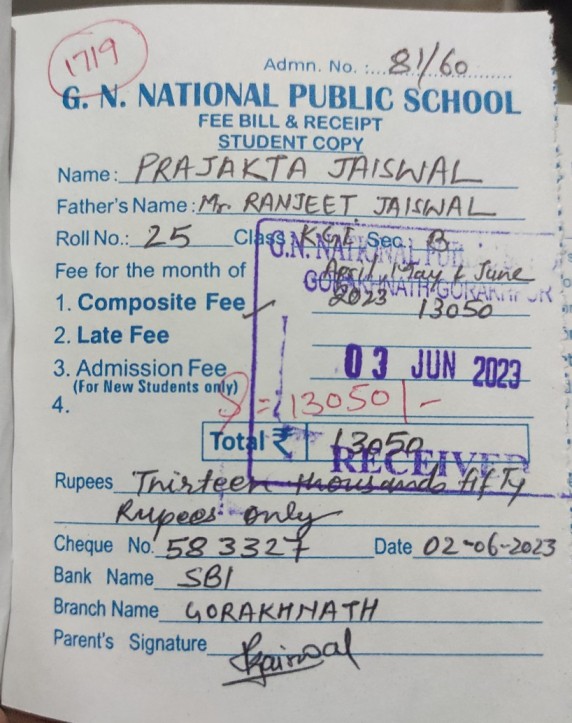 1719
Admn. No. : 81/60
G. N. NATIONAL PUBLIC SCHOOL
FEE BILL & RECEIPT
STUDENT COPY
Name: PRAJAKTA JAISWAL
Father's Name: Mr. RANJEET JAISWAL
Roll No.: 25 Class K.G.I Sec. B
G.N. NATIONAL PUB
Fee for the month of April, May & June
GORAKHNATH GORAKHPUR
2023
1. Composite Fee ✓ 13050
2. Late Fee
03 JUN 2023
3. Admission Fee
(For New Students only)
4. = 13050/-
Total ₹ 13050
RECEIVED
Rupees Thirteen thousands fifty
Rupees only
Cheque No. 583327 Date 02-06-2023
Bank Name SBI
Branch Name GORAKHNATH
Parent's Signature Rjaiswal